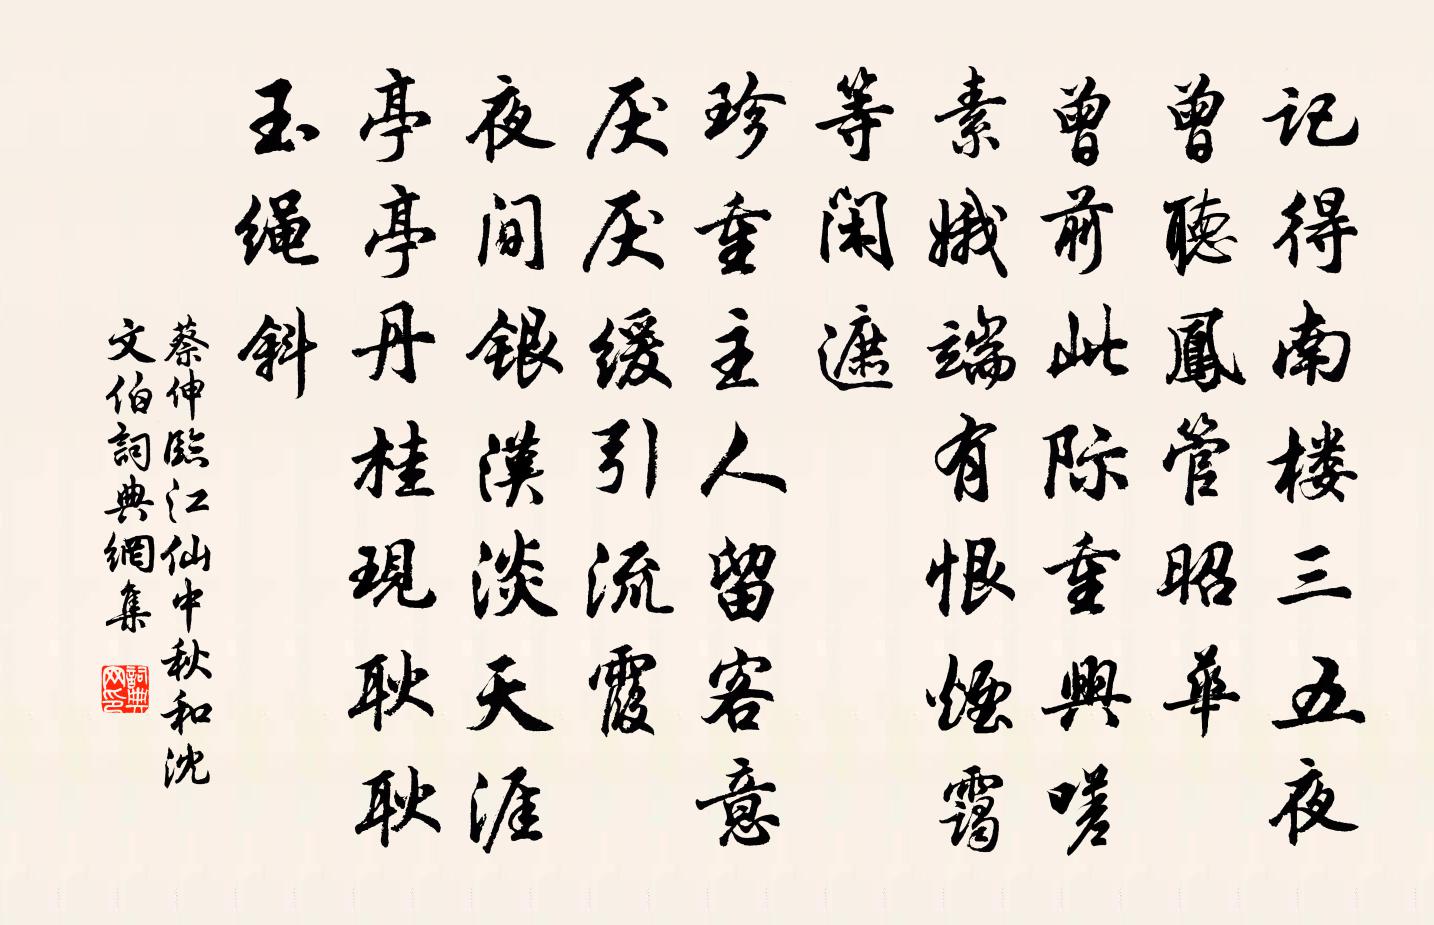 记得南楼三五夜
曾聽鳳管昭華
曾前此际重興嗟
素娥端有恨煙靄
等闲遮
珍重主人留客意
厌厌缓引流霞
夜间银漢淡天涯
亭亭丹桂現耿耿
玉绳斜
蔡伸臨江仙中秋和沈
文伯詞典網集
詞典
网印